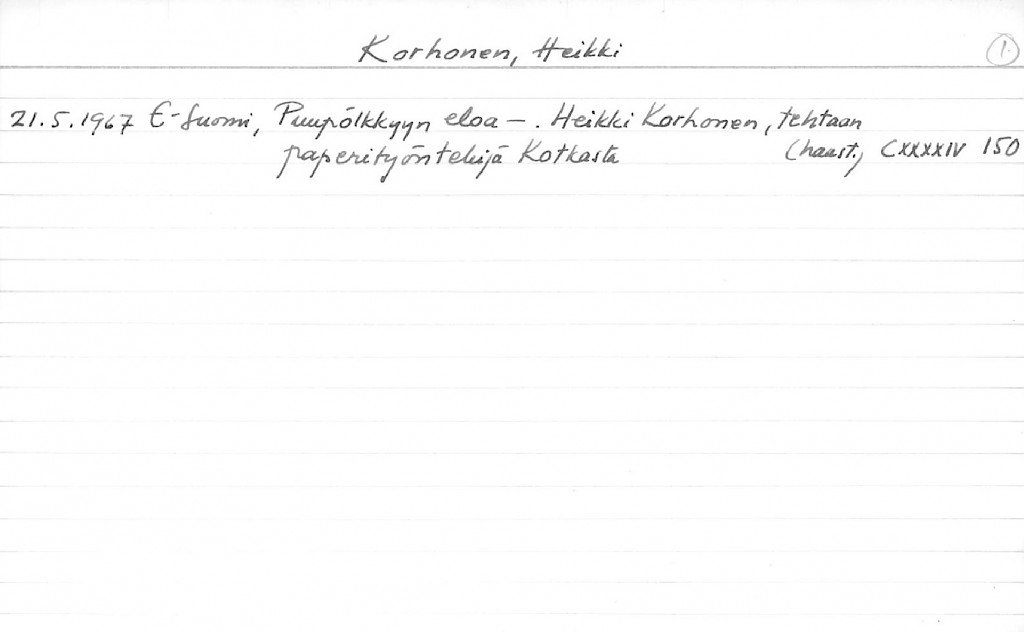 Korhonen, Heikki 1.
21.5.1967 E-Suomi, Puupölkkyyn eloa - . Heikki Korhonen, tehtaan
paperityöntekijä Kotkasta (haast.) CXXXXIV 150